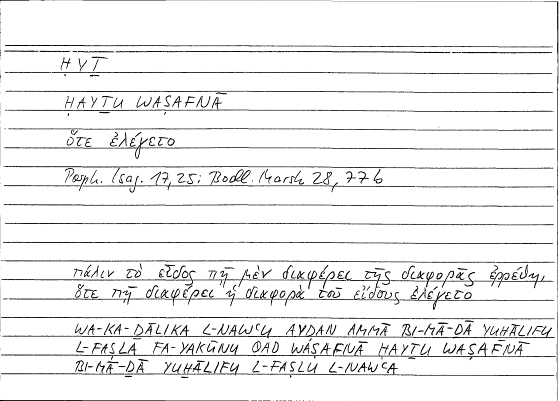 ḤYṮ
ḤAYṮU WAṢAFNĀ
ὅτε ἐλέγετο
Porph. Isag. 17,25; Bodl. Marsh 28, 77b
πάλιν τὸ εἶδος πῇ μὲν διαφέρει τῆς διαφορᾶς ἐρρέθη,
ὅτε πῇ διαφέρει ἡ διαφορὰ τοῦ εἴδους ἐλέγετο
WA-KA-ḎĀLIKA L-NAWʿU AYḌAN AMMĀ BI-MĀ-ḎĀ YUḪĀLIFU
L-FAṢLA FA-YAKŪNU QAD WAṢAFNĀ ḤAYṮU WAṢAFNĀ
BI-MĀ-ḎĀ YUḪĀLIFU L-FAṢLU L-NAWʿA